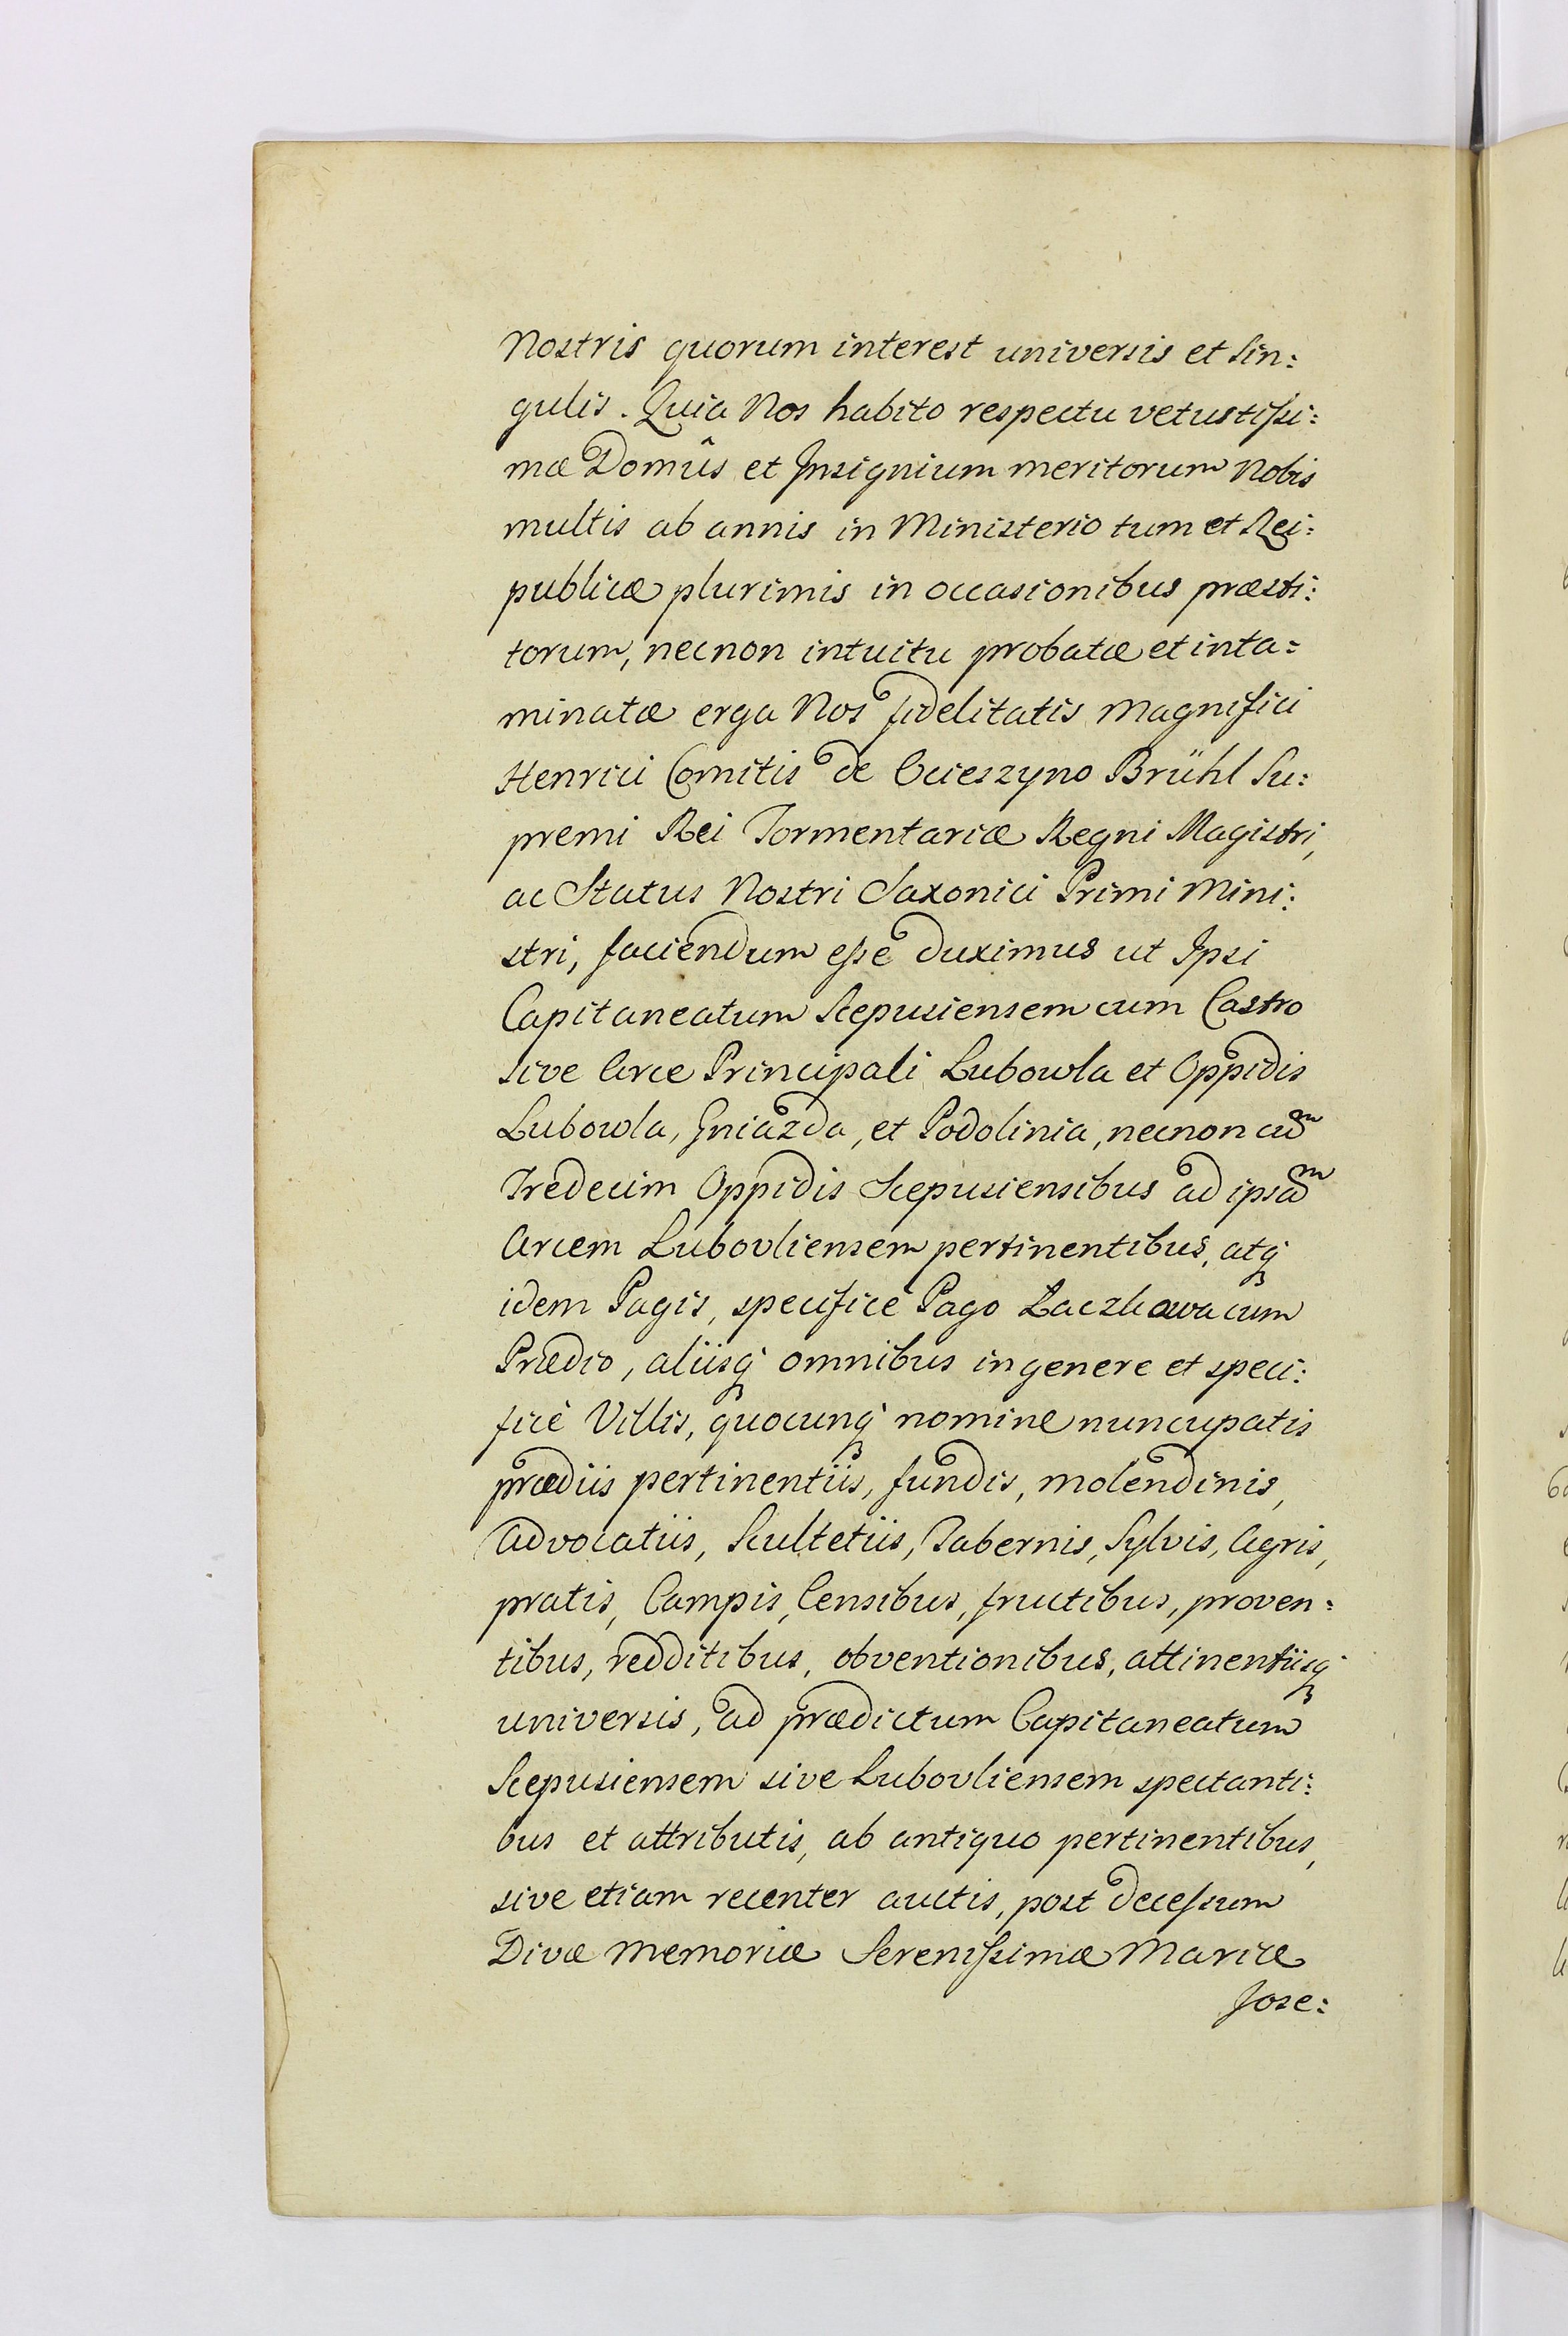 Nostris quorum interest universis et sin:
gulis. Quia Nos habito respectu vetustissi:
mæ Domûs et Insignium meritorum Nobis
multis ab annis in Ministerio tum et Rei:
publicæ plurimis in occasionibus præsti:
torum, necnon intuitu probatæ et inta=
minatæ erga Nos fidelitatis Magnifici
Henrici Comitis de Ocieszyno Brühl Su:
premi Rei Tormentariæ Regni Magistri,
ac Status Nostri Saxonici Primi Mini:
stri, faciendum esse duximus ut Ipsi
Capitaneatum Scepusiensem cum Castro
sive Arce Principali Lubowla et Oppidis
Lubowla, Gniazda, et Podolinia, necnon cum
Tredecim Oppidis Scepusiensibus ad ipsam
Arcem Lubovliensem pertinentibus, atq
idem Pagis, specificè Pago
Prædio, aliisq omnibus in genere et speci:
ficè Villis, quocunq nomine nuncupatis
prædiis pertinentiis, fundis, molendinis,
Advocatiis, Scultetiis, Tabernis, Sylvis, Agris,
pratis, Campis, Censibus, fructibus, proven:
tibus, redditibus, obventionibus, attinentiisq
universis, ad prædictum Capitaneatum
Scepusiensem sive Lubovliensem spectanti:
bus et attributis, ab antiquo pertinentibus,
sive etiam recenter auctis, post decessum
Divæ Memoriæ Serenissimæ Mariæ
Jose: